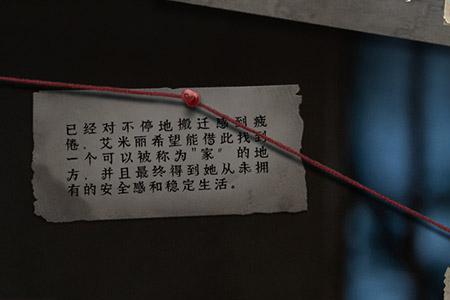 已经对不停地搬迁感到疲
倦，艾米丽希望能借此找到
一个可以被称为"家"的地
方，并且最终得到她从未拥
有的安全感和稳定生活。